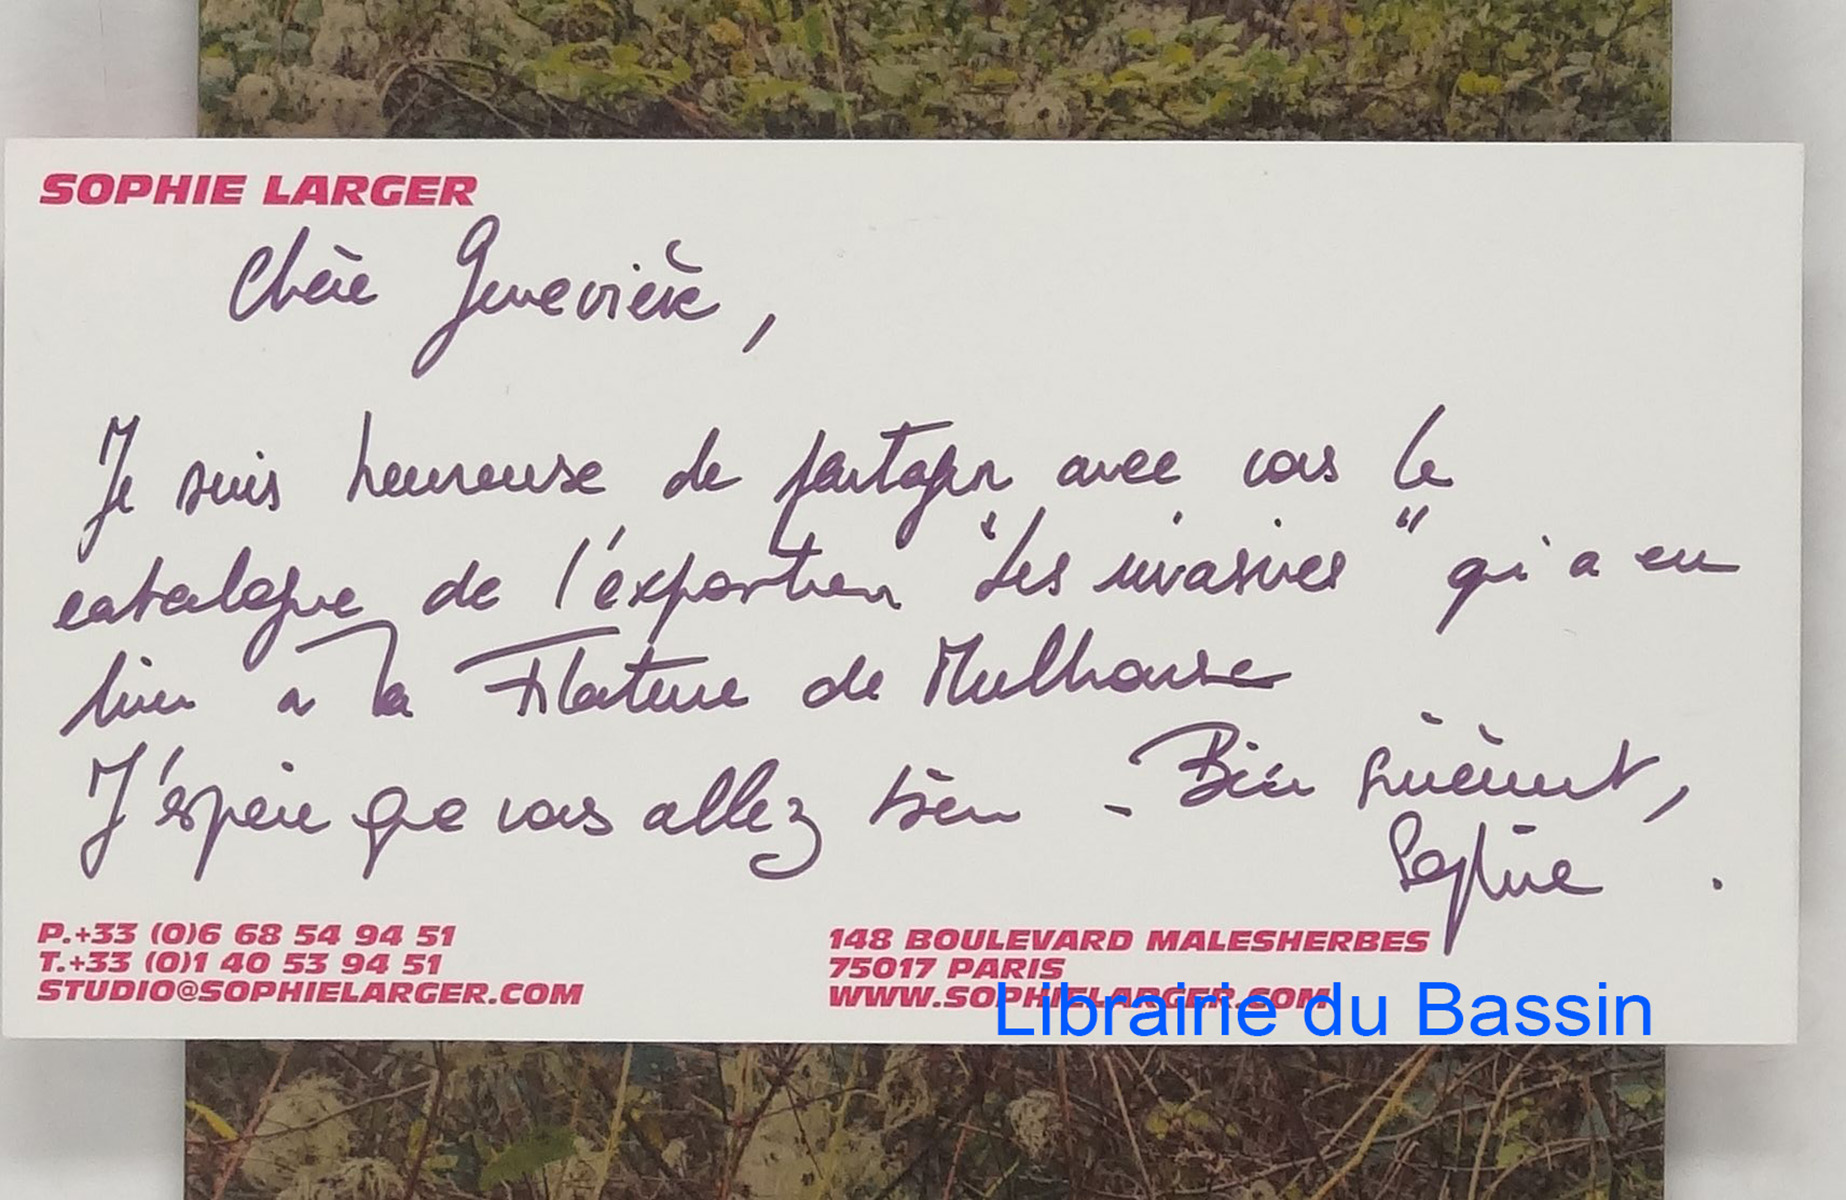 SOPHIE LARGER
Chère Geneviève,
Je suis heureuse de partager avec vous le
catalogue de l'exposition "Les invasives" qui a eu
lieu à la Filature de Mulhouse
J'espère que vous allez bien - Bien sincèrement,
Sophie.
P.+33 (0)6 68 54 94 51
T.+33 (0)1 40 53 94 51
STUDIO@SOPHIELARGER.COM
148 BOULEVARD MALESHERBES
75017 PARIS
WWW.SOPHIELARGER.COM
Librairie du Bassin